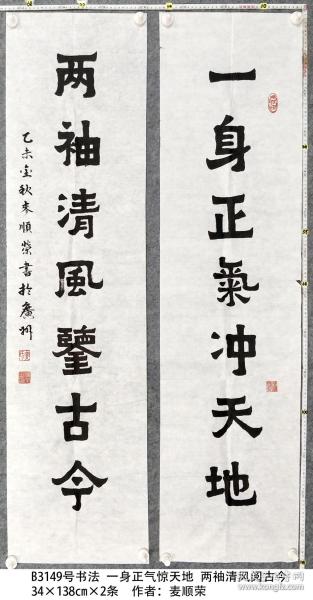 一身正氣冲天地
两袖清風鑒古今
乙未金秋麥順榮書於廣州
B3149号书法 一身正气惊天地 两袖清风阅古今
34×138cm×2条 作者：麦顺荣